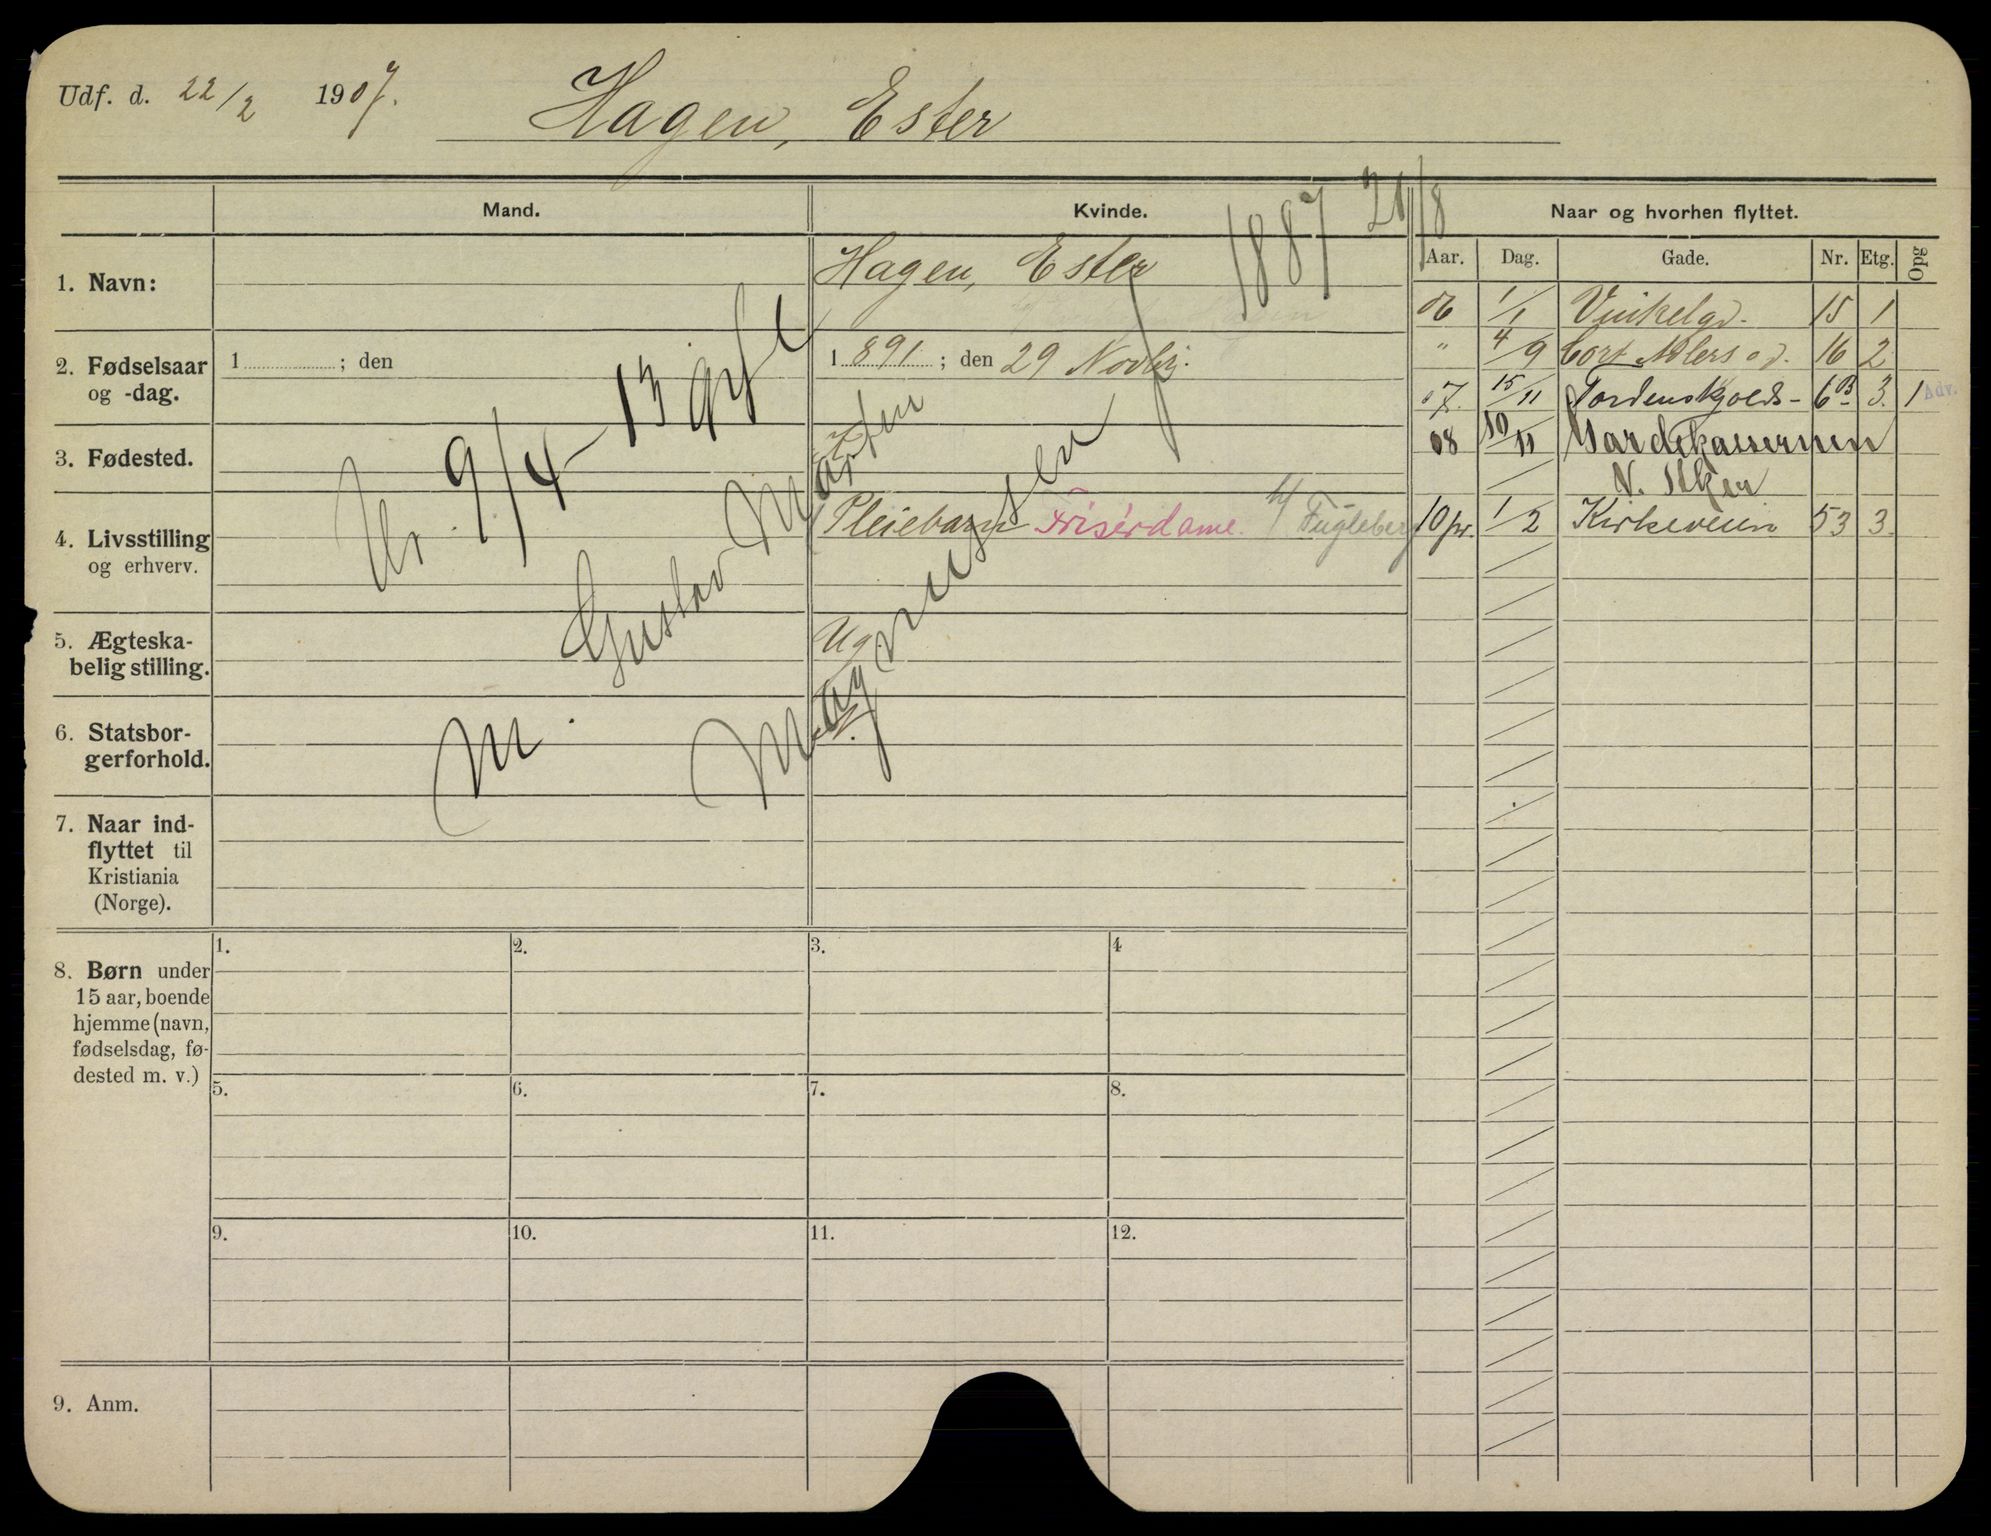 Udf. d. 22/2 1907.
Hagen, Ester
Mand.
Kvinde.
Naar og hvorhen flyttet.
Aar. Dag. Gade. Nr. Etg. Opg
1. Navn:
Hagen, Ester
1887 21/8
06 1/1 Vinkelgd. 15 1
2. Fødselsaar
og -dag.
1 ; den
1891 ; den 29 Novbr.
" 4/9 Cort Adlersgd. 16 2
07. 15/11 Tordenskjolds- 6B 3. 1 Adv.
3. Fødested.
K
08 10/11 Gardekasernen
4. Livsstilling
og erhverv.
Pleiebarn Frisérdame. h/ Fugleberg
10 pr. 1/2 Kirkeveien 53 3.
Ur 9/4-13 gift
Gustav Marten
Magnussen
M
5. Ægteska-
belig stilling.
Ug.
6. Statsbor-
gerforhold.
N.
7. Naar ind-
flyttet til
Kristiania
(Norge).
8. Børn under
15 aar, boende
hjemme (navn,
fødselsdag, fø-
dested m. v.)
1. 2. 3. 4
5. 6. 7. 8.
9. 10. 11. 12.
9. Anm.